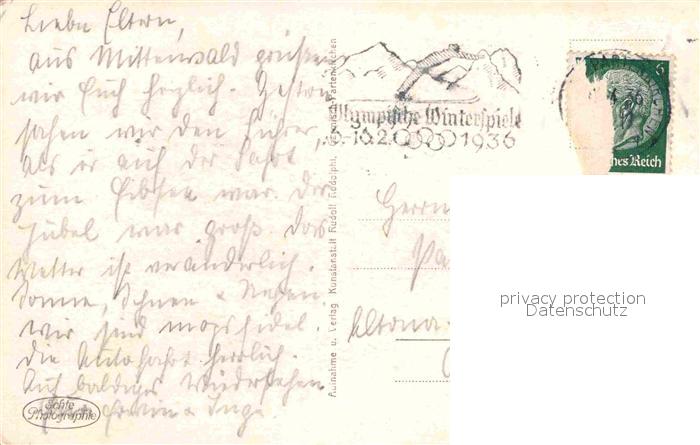 Liebe Eltern,
aus Mittenwald grüßen
wir Euch herzlich. Gestern
sahen wir den Führer,
als er auf der Fahrt
zum Eibsee war. Der
Jubel war groß. Das
Wetter ist veränderlich.
Sonne, Schnee + Regen.
Wir sind mopsfidel.
Die Autofahrt herrlich.
Auf baldiges Wiedersehen
+ Inge.
Echte
Photographie
Aufnahme u. Verlag Kunstanstalt Rudolf Rudolphi, Garmisch-Partenkirchen
Olympische Winterspiele
6.-16.2. 1936
6
ches Reich
Herrn
Pa
Altona-
privacy protection
Datenschutz